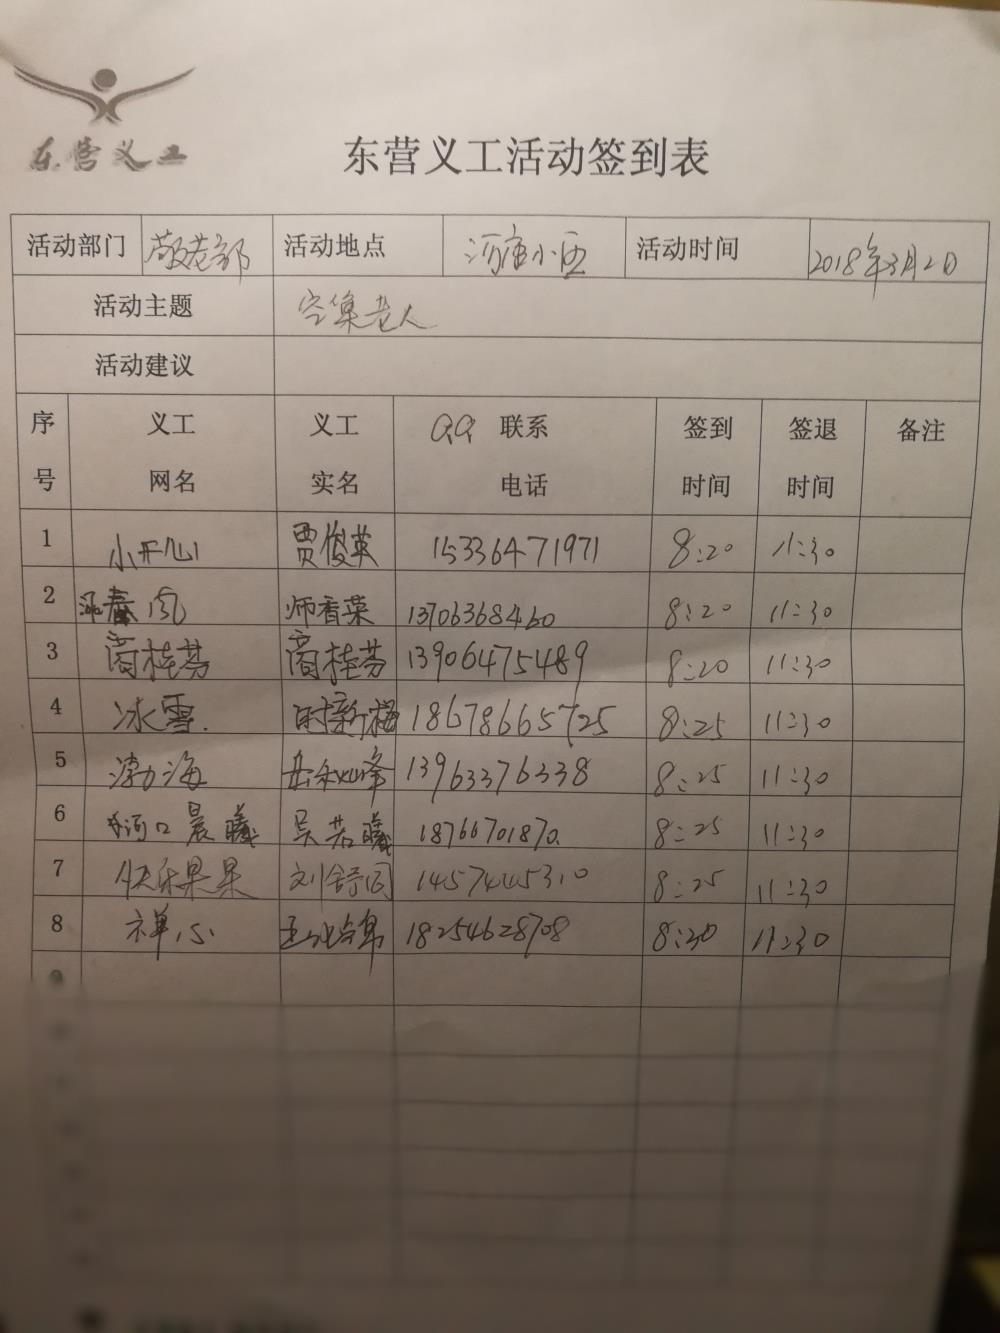 东营义工
东营义工活动签到表
活动部门 敬老部 活动地点 河库小区 活动时间 2018年3月2日
活动主题 空巢老人
活动建议
序号 义工网名 义工实名 QQ 联系电话 签到时间 签退时间 备注
1 小开心 贾俊英 15336471971 8:20 11:30
2 春风 师香菜 13706368460 8:20 11:30
3 商桂芬 商桂芬 13906475489 8:20 11:30
4 冰雪. 时新梅 18678665725 8:25 11:30
5 渤海 岳秋峰 13963376338 8:25 11:30
6 河口晨曦 吴若曦 18766701870. 8:25 11:30
7 快乐果果 刘舒同 14574445310 8:25 11:30
8 禅心 18254628708 8:30 11:30
9